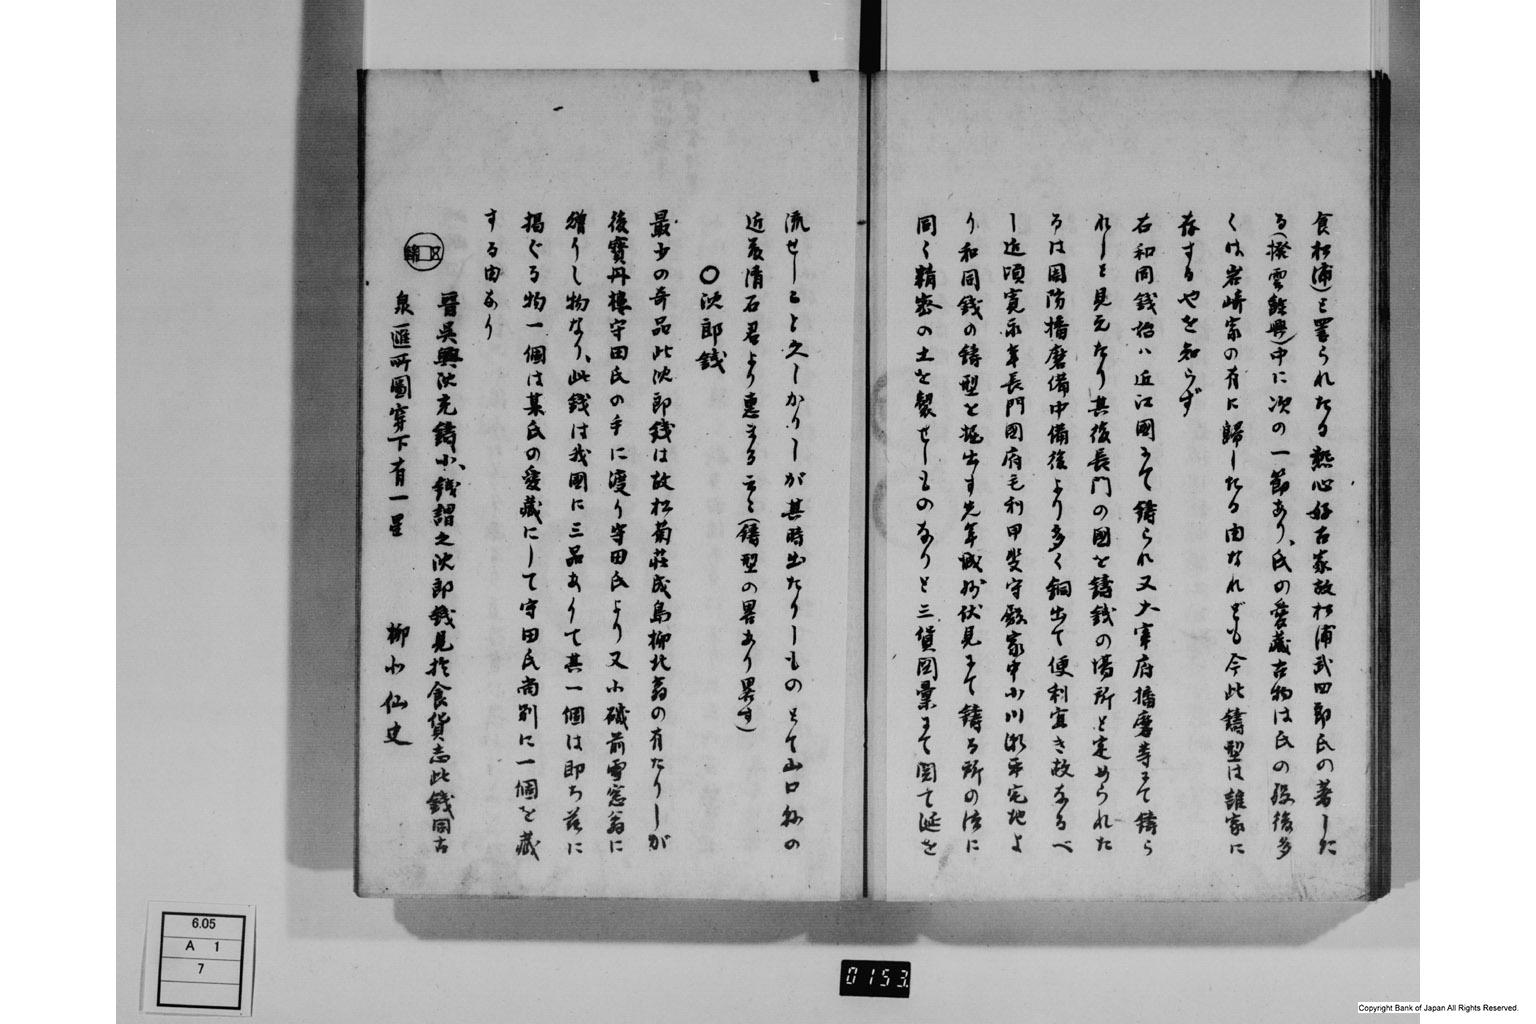 食松浦)と署られたる熱心好古家故松浦武四郎氏の著した
る(撥雲餘興)中に次の一節あり、氏の愛藏古物は氏の歿後多
くは岩崎家の有に歸したる由なれども今此鑄型は誰家に
存するやを知らず
右和同錢始ハ近江國にて鑄られ又大宰府播磨等にて鑄ら
れしと見えたり其後長門の國を鑄錢の場所と定められた
るは周防播磨備中備後より多く銅出て便利宜き故なるべ
し近頃寛永年長門國府毛利甲斐守殿家中小川 宅地よ
り和同錢の鑄型を掘出す先年城州伏見にて鑄る所の法に
同く精密の土を製せしものなりと三貨圖彙にて図て延を
流せしこと久しかりしが其時出たりしものとて山口 の
近藤清石君より惠まる云々(鑄型の畧あり畧す)
〇沈郎錢
最少の奇品此沈郎錢は故松菊莊成島柳北翁の有たりしが
後寶丹樓守田氏の手に渡り守田氏より又小磯前雪窓翁に
贈りし物なり、此錢は我國に三品ありて其一個は即ち茲に
揭ぐる物一個は某氏の愛藏にして守田氏尚別に一個を藏
する由あり
晋吳興沈充鑄小錢謂之沈郎錢見於食貨志此錢同古
泉匯所圖穿下有一星
柳北仙史
6.05
A 1
7
0153.
Copyright Bank of Japan All Rights Reserved.